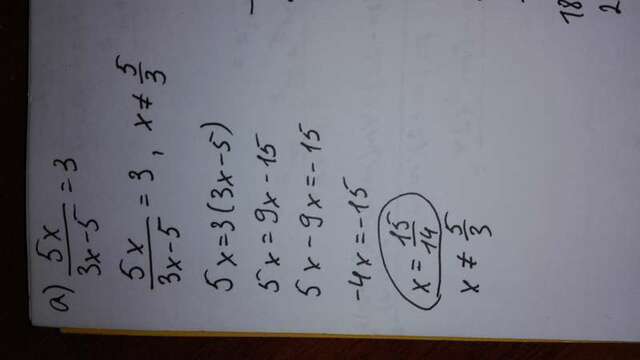 a) 5x/3x-5 = 3
5x/3x-5 = 3, x ≠ 5/3
5x = 3(3x-5)
5x = 9x-15
5x-9x = -15
-4x = -15
x = 15/14
x ≠ 5/3
18
2